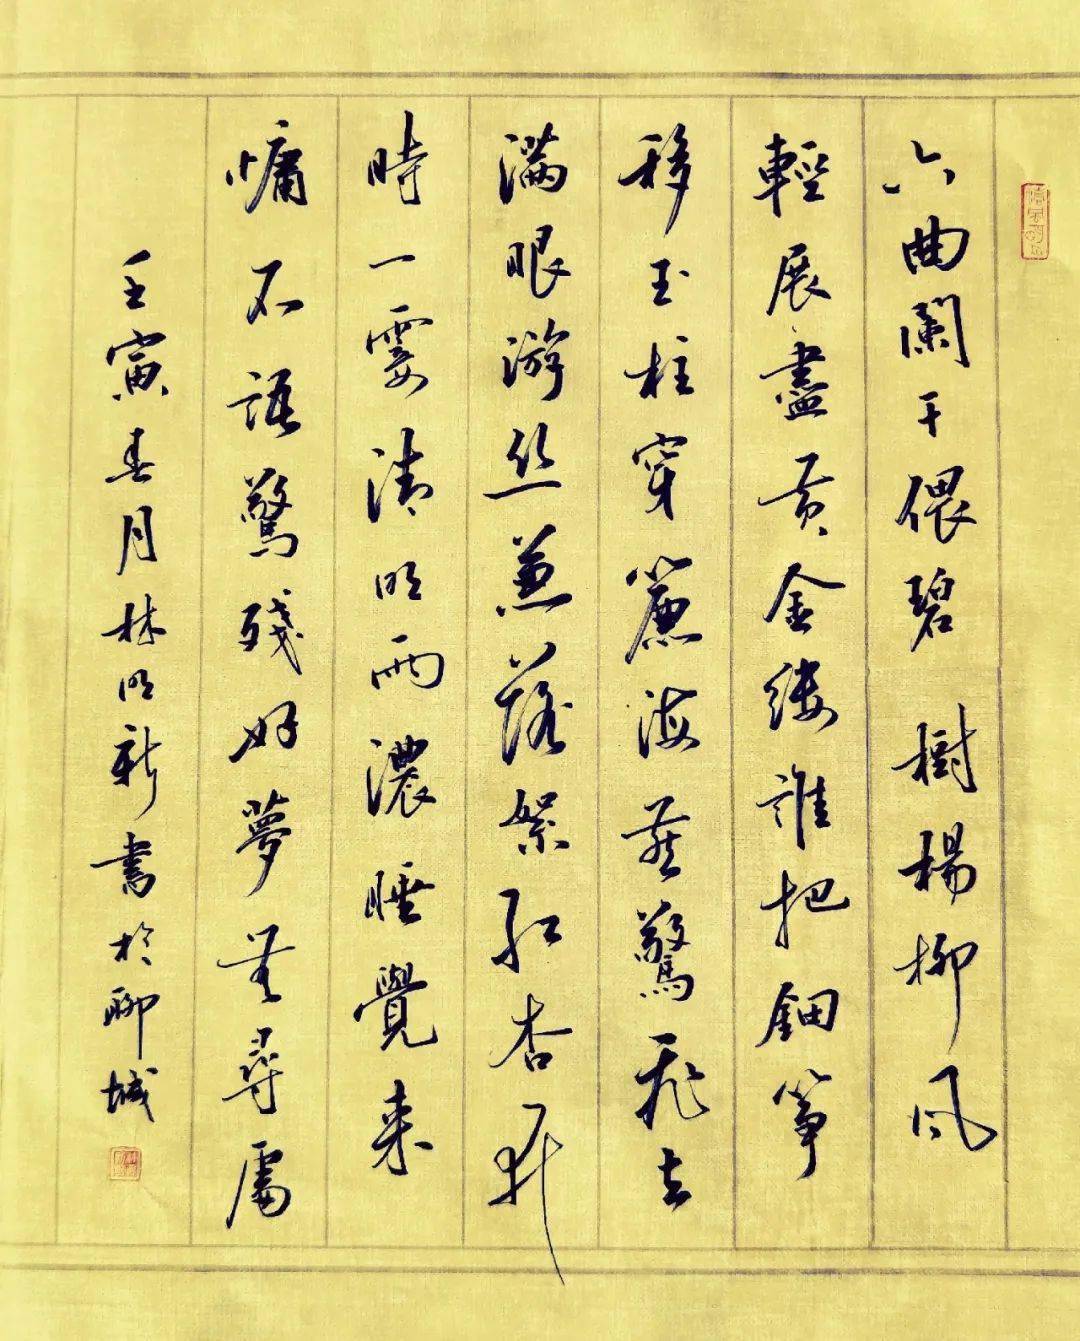 六曲闌干偎碧樹楊柳风
輕展盡黄金缕誰把鈿箏
移玉柱穿簾海燕驚飛去
滿眼游丝兼落絮紅杏開
時一霎清明雨濃睡覺来
慵不語驚殘好夢無尋處
壬寅春月林明新書於聊城